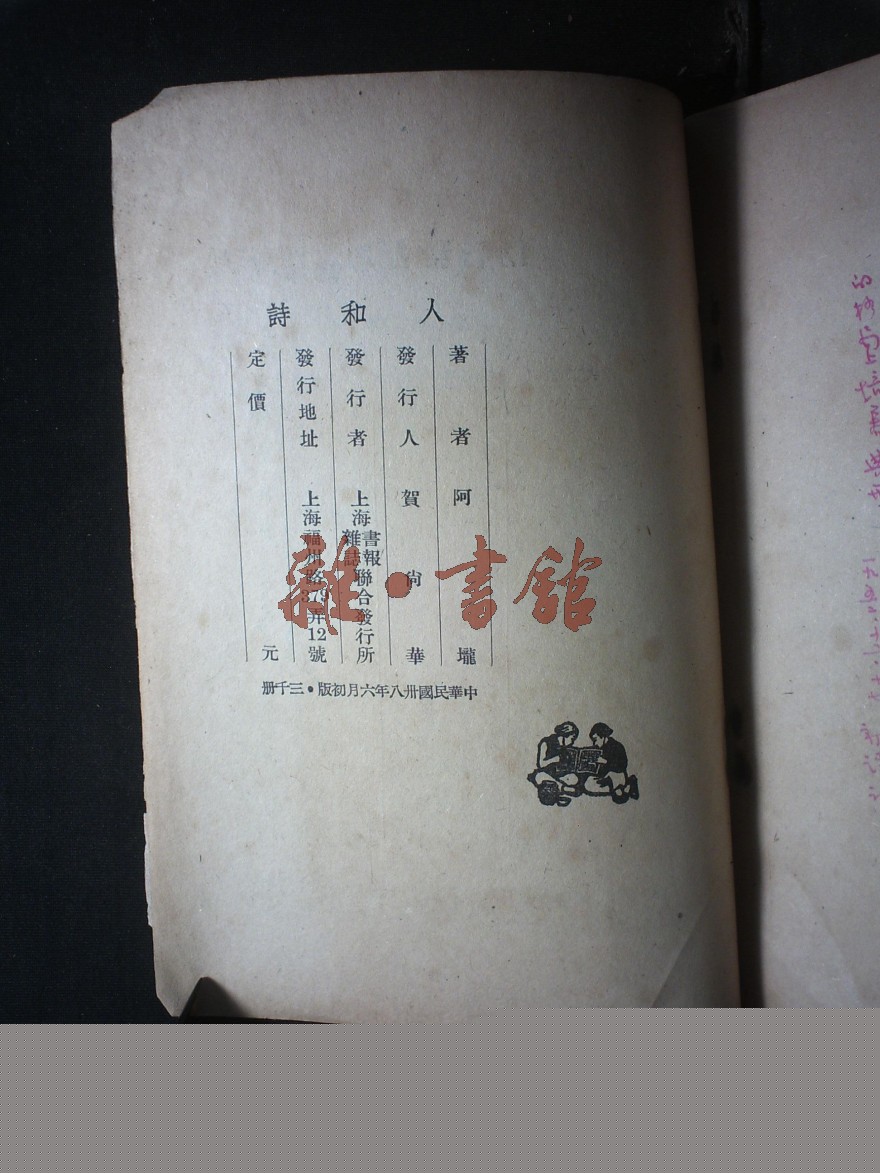 人和詩
著者 阿壠
發行人 賀尙華
發行者 上海書報雜誌聯合發行所
發行地址 上海福州路379弄12號
定價 元
中華民國卅八年六月初版•三千册
雜•書館